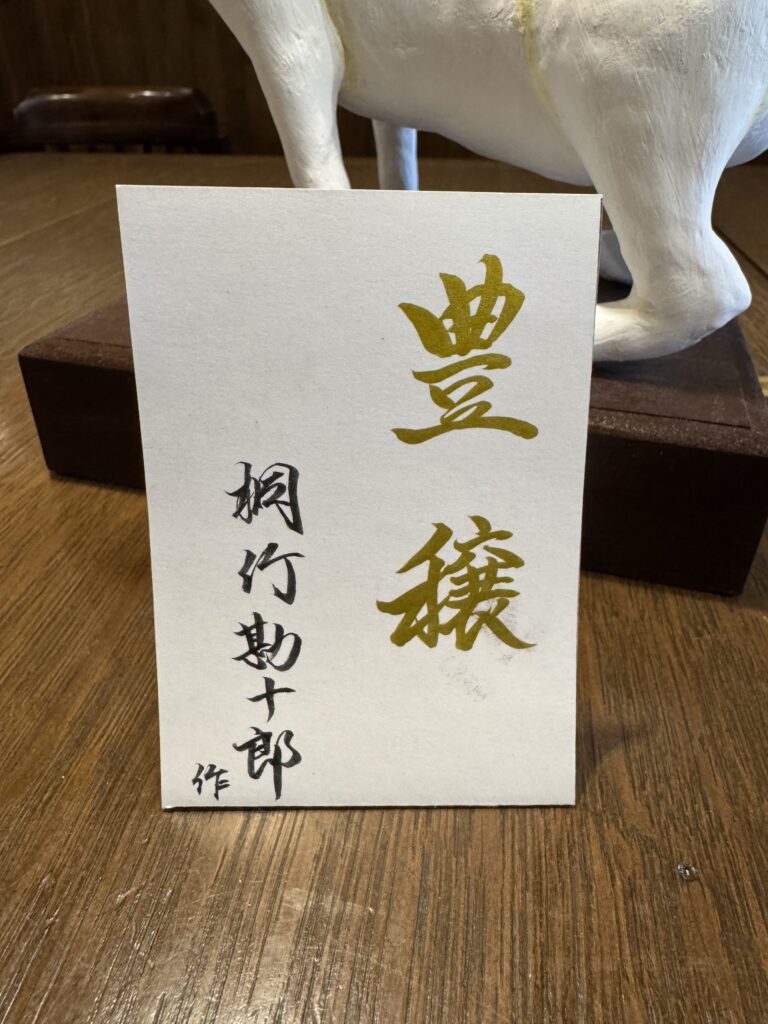 豊穣
桐竹勘十郎
作